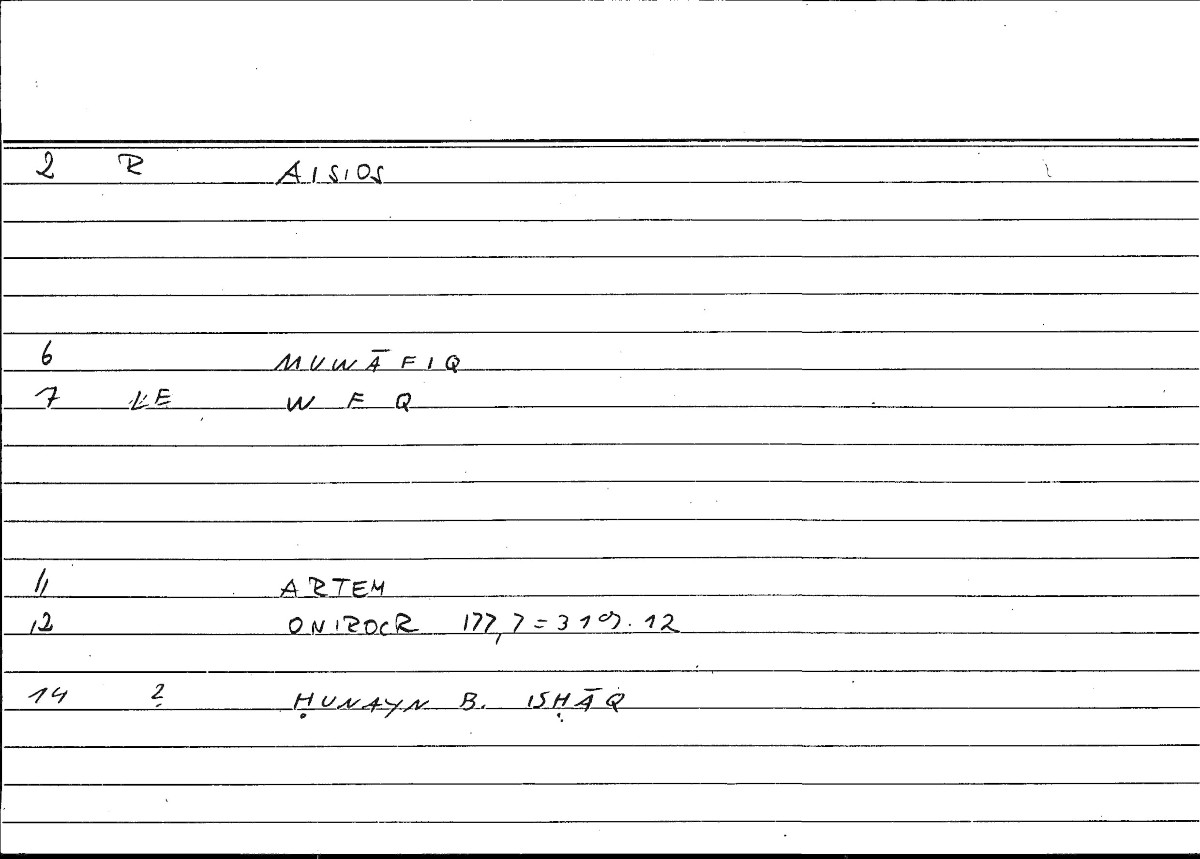 2 R AISIOS
6 MUWĀFIQ
7 LE W F Q
11 ARTEM
12 ONIROCR 177,7 = 319.12
14 ? ḤUNAYN B. ISḤĀQ